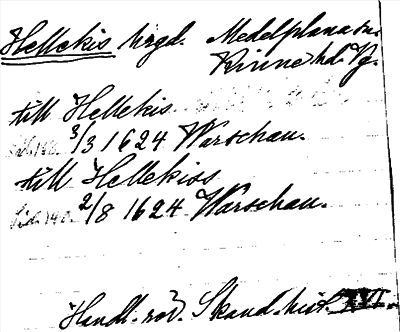 Hellekis hrgd. Medelplana sn.
Kinne hd. Vg.
till Hellekis.
3/3 1624 Warschau.
till Hellekiss
Sid. 140. 2/8 1624 Warschau.
Handl. rör. Skand. hist. XVI.